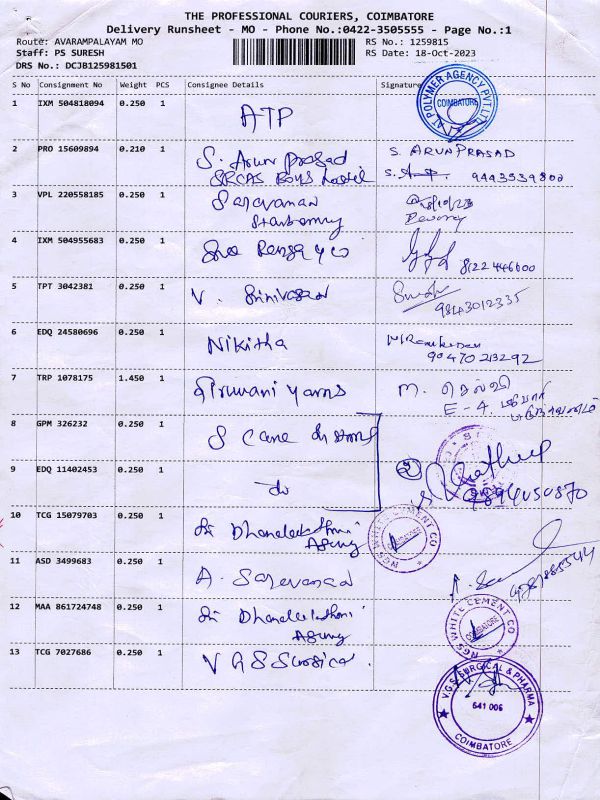 THE PROFESSIONAL COURIERS, COIMBATORE
Delivery Runsheet - MO - Phone No.:0422-3505555 - Page No.:1
Route: AVARAMPALAYAM MO
RS No.: 1259815
Staff: PS SURESH
RS Date: 18-Oct-2023
DRS No.: DCJB125981501
S No Consignment No Weight PCS Consignee Details Signature
1 IXM 504818094 0.250 1 ATP
AT POLYMER AGENCY PVT LTD
COIMBATORE
2 PRO 15609894 0.210 1 S. Arun Prasad S. ARUN PRASAD
SRCAS Boys hostel
3 VPL 220558185 0.250 1 Saravanan
4 IXM 504955683 0.250 1 8122446600
5 TPT 3042381 0.250 1 V. Srinivasan
9843012335
6 EDQ 24580696 0.250 1 Nikitha
9047023292
7 TRP 1078175 1.450 1 M. செல்வி
E-4
8 GPM 326232 0.250 1
9 EDQ 11402453 0.250 1 do
10 TCG 15079703 0.250 1 Sri Dhanalakshmi
Agency
NGS WHITE CEMENT CO
COIMBATORE
11 ASD 3499683 0.250 1 A. Saravanan
12 MAA 861724748 0.250 1 Sri Dhanalakshmi
Agency
NGS WHITE CEMENT CO
COIMBATORE
13 TCG 7027686 0.250 1 V G S Surgical
V.G.S. SURGICAL & PHARMA
641 006
COIMBATORE